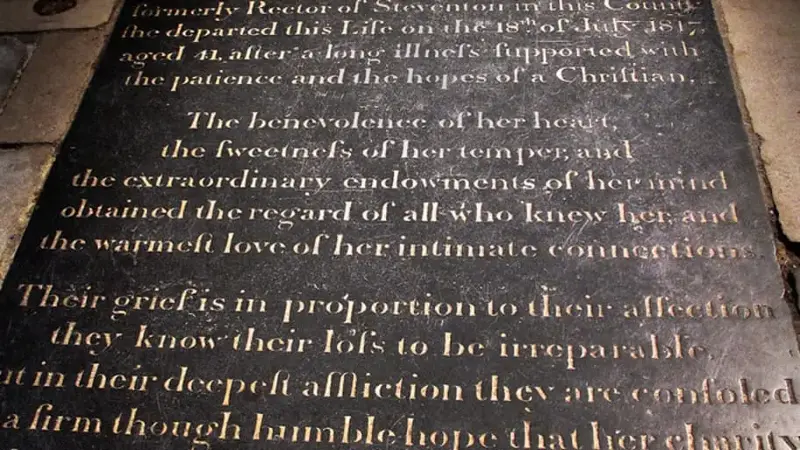 formerly Rector of Steventon in this County
she departed this Life on the 18th of July 1817,
aged 41, after a long illneſs ſupported with
the patience and the hopes of a Chriſtian.
The benevolence of her heart,
the ſweetneſs of her temper, and
the extraordinary endowments of her mind
obtained the regard of all who knew her, and
the warmeſt love of her intimate connections.
Their grief is in proportion to their affection
they know their loſs to be irreparable,
in their deepeſt affliction they are conſoled
a firm though humble hope that her charity